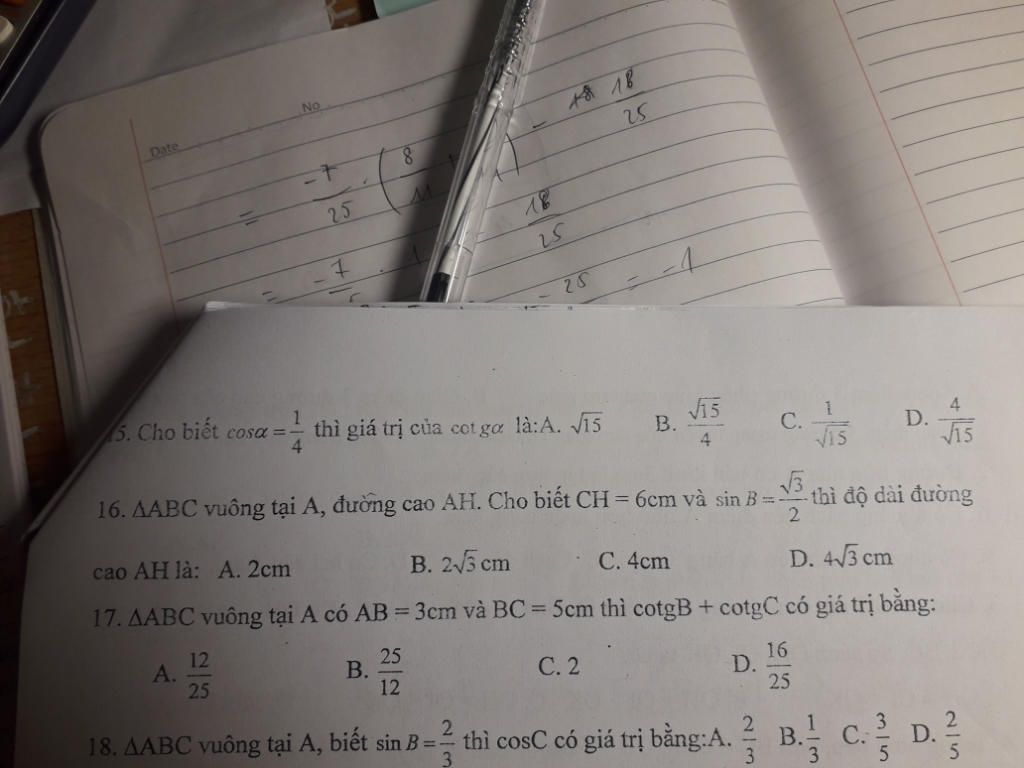 No
Date
18/25
= -7/25 · ( 8/11 ) -
18/25
= -7 · 1
- 25 = -1
5. Cho biết cosα = 1/4 thì giá trị của cotgα là:A. √15 B. √15/4 C. 1/√15 D. 4/√15
16. ΔABC vuông tại A, đường cao AH. Cho biết CH = 6cm và sin B = √3/2 thì độ dài đường
cao AH là: A. 2cm B. 2√3 cm C. 4cm D. 4√3 cm
17. ΔABC vuông tại A có AB = 3cm và BC = 5cm thì cotgB + cotgC có giá trị bằng:
A. 12/25 B. 25/12 C. 2 D. 16/25
18. ΔABC vuông tại A, biết sin B = 2/3 thì cosC có giá trị bằng:A. 2/3 B. 1/3 C. 3/5 D. 2/5